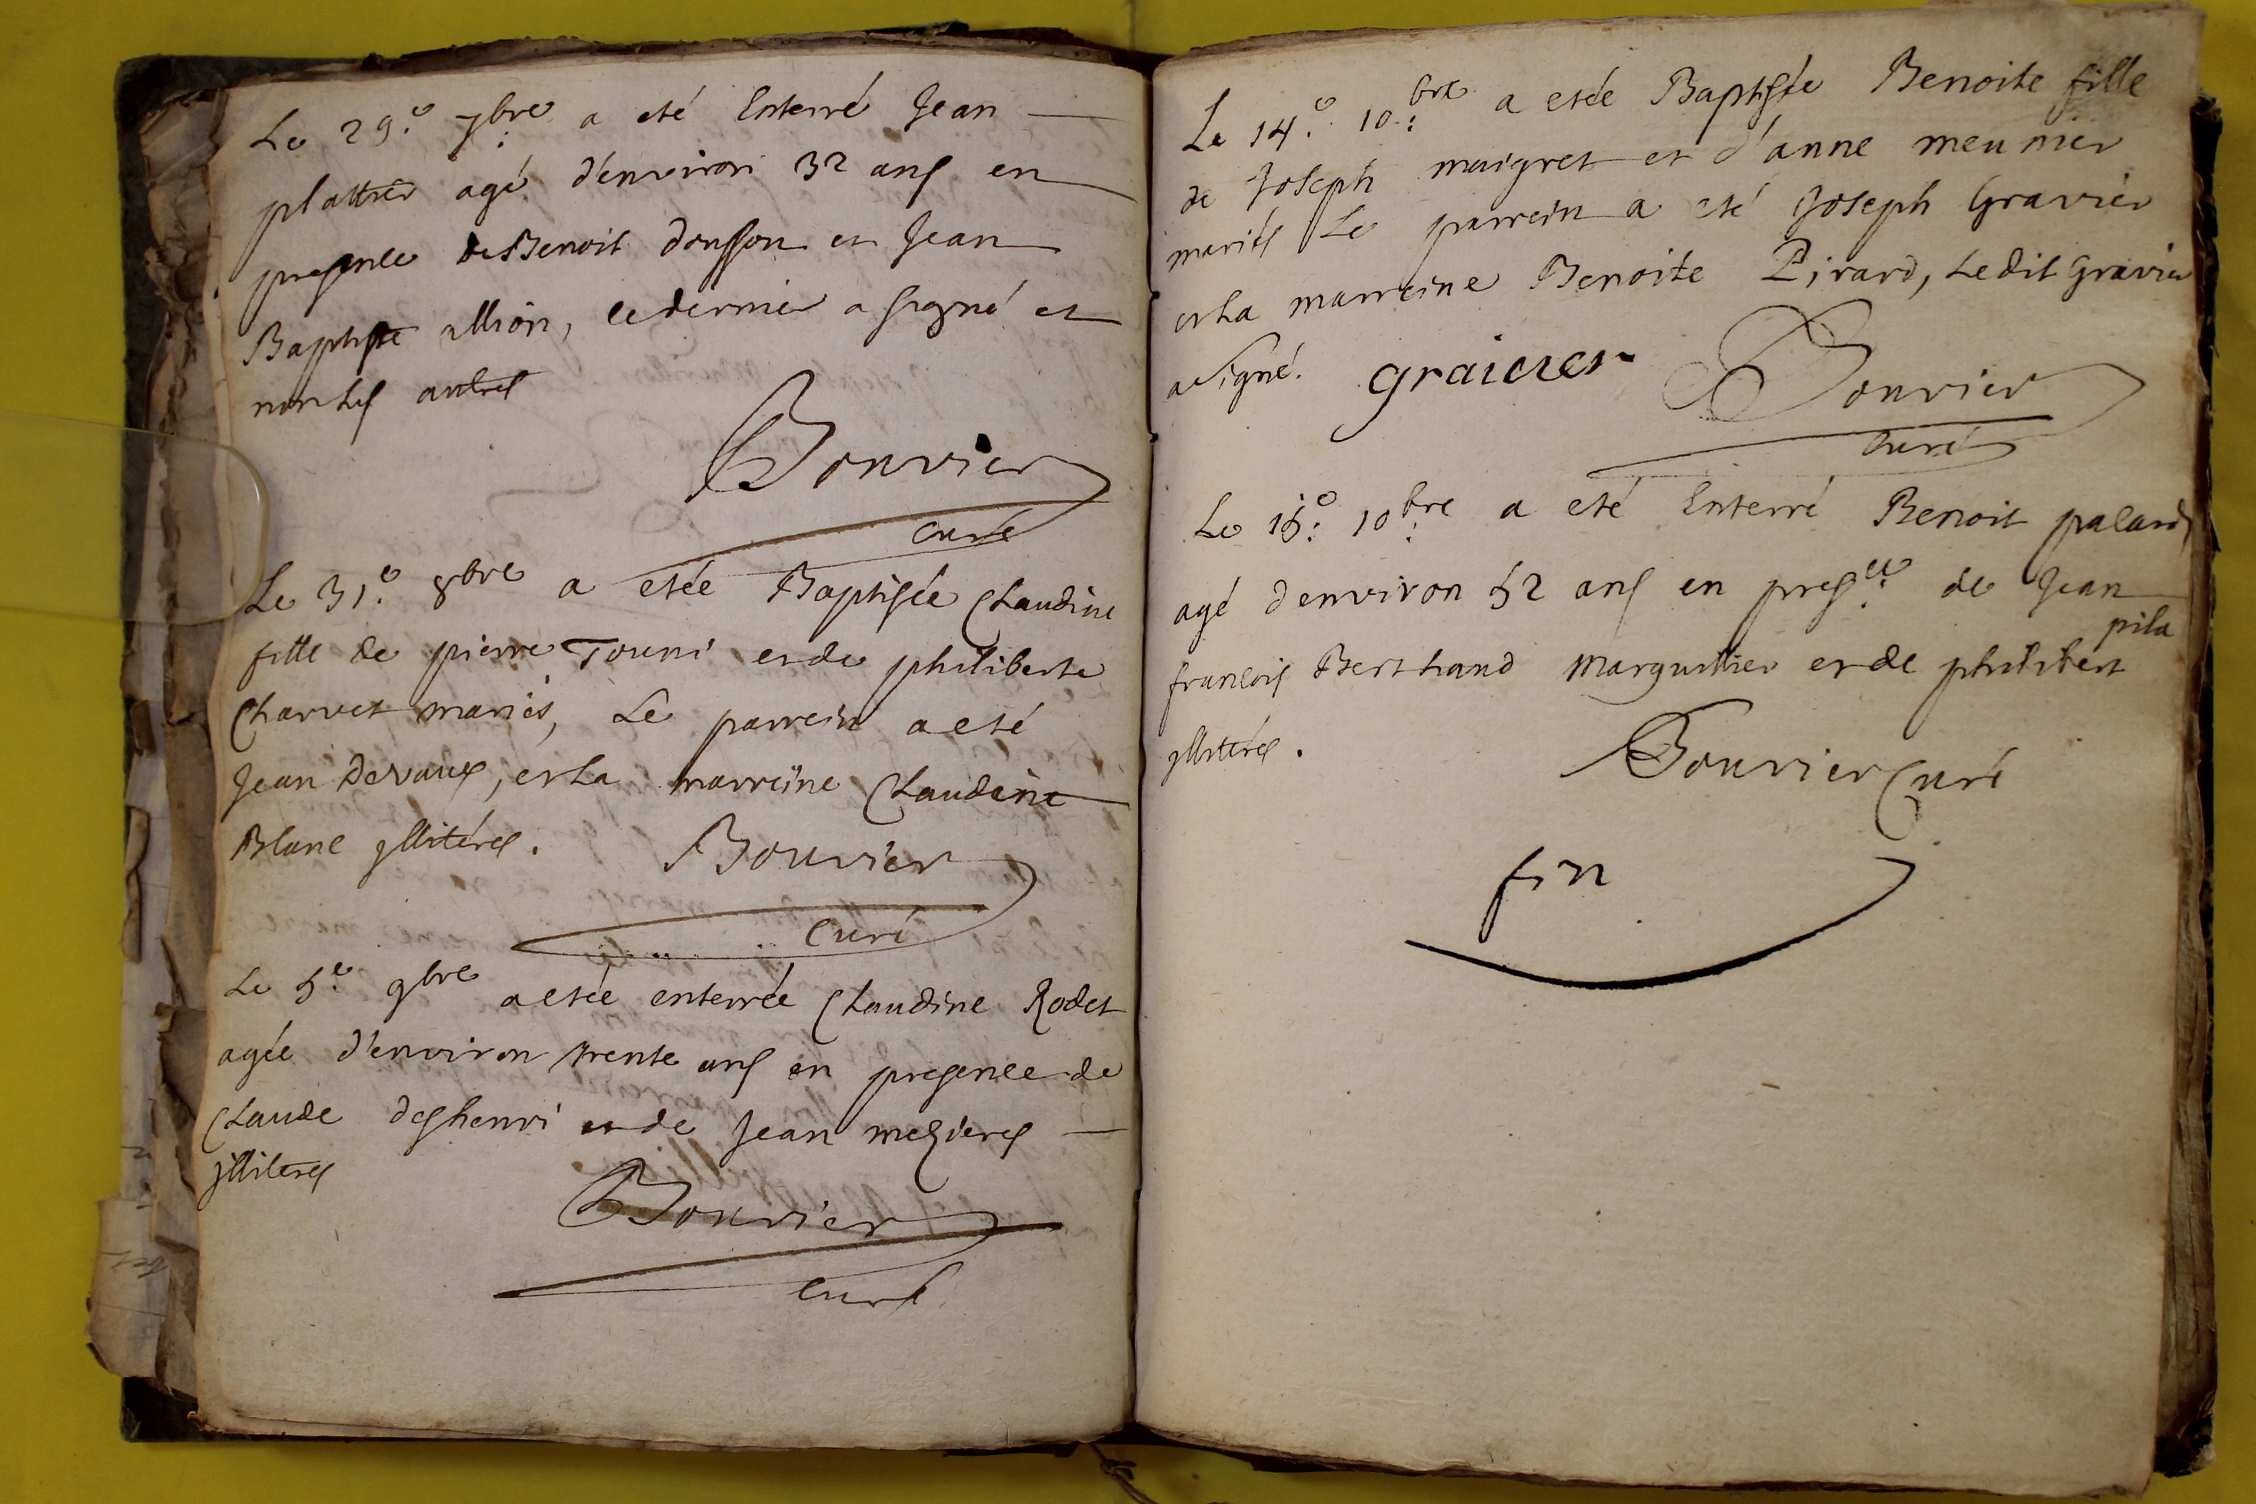 Le 29.e 7bre a eté Enterré Jean
plattier agé d'environ 32 ans en
presence de Benoit donsson et Jean
Baptiste allion, le dernier a signé et
non les autres
Bouvier
curé
Le 31.e 8bre a etée Baptisée Claudine
fille de pierre Touni et de philiberte
Charvet mariés, Le parrein a eté
Jean Devaux, et La marreine Claudine
Blanc yllitérés.
Bouvier
curé
Le 5.e 9bre a etée enterrée Claudine Rodet
agée d'environ trente ans en presence de
Claude deshenri et de Jean mezieres
yllitérés
Bouvier
curé
Le 14.e 10.bre a etée Baptisée Benoite fille
de Joseph maigret et d'anne meunier
mariés Le parrein a eté Joseph Gravier
et La marreine Benoite Pirard, Ledit Gravier
a signé. graivier Bouvier
curé
Le 15.e 10.bre a eté Enterré Benoit palandy
agé d'environ 52 ans en pres.ce de Jean
francois Berthand marguillier et de philibert pila
yllitérés.
Bouvier Curé
fin